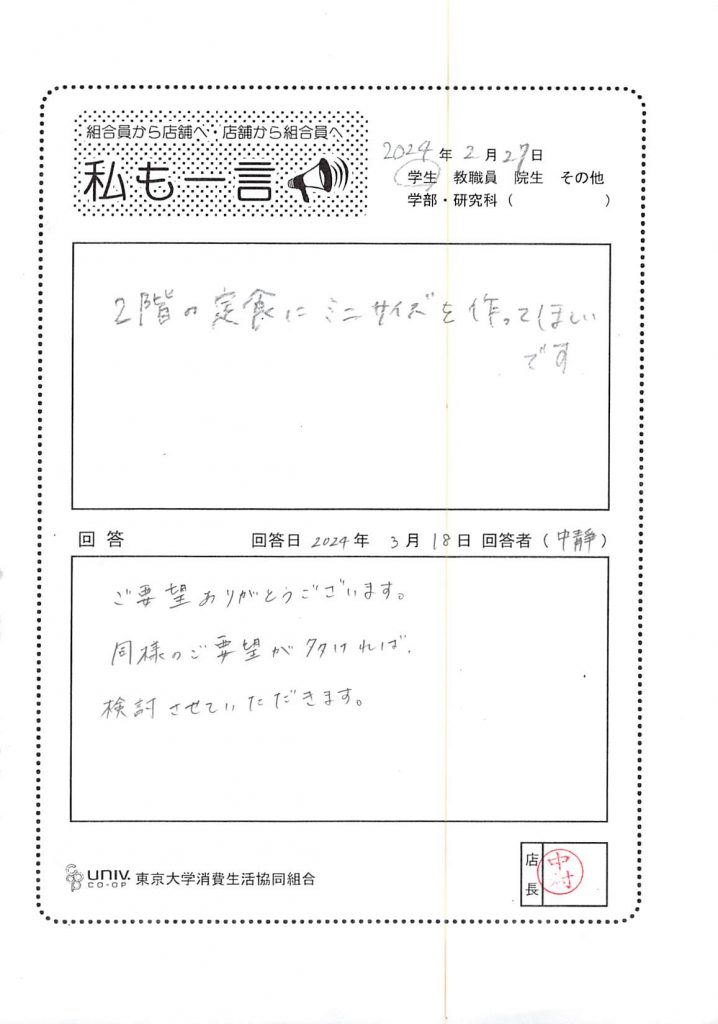 組合員から店舗へ・店舗から組合員へ
私も一言
2024年2月27日
学生 教職員 院生 その他
学部・研究科（ ）
2階の定食にミニサイズを作ってほしい
です
回答 回答日 2024年 3月18日 回答者（中靜）
ご要望ありがとうございます。
同様のご要望が多ければ、
検討させていただきます。
UNIV. CO-OP 東京大学消費生活協同組合
店長
中村